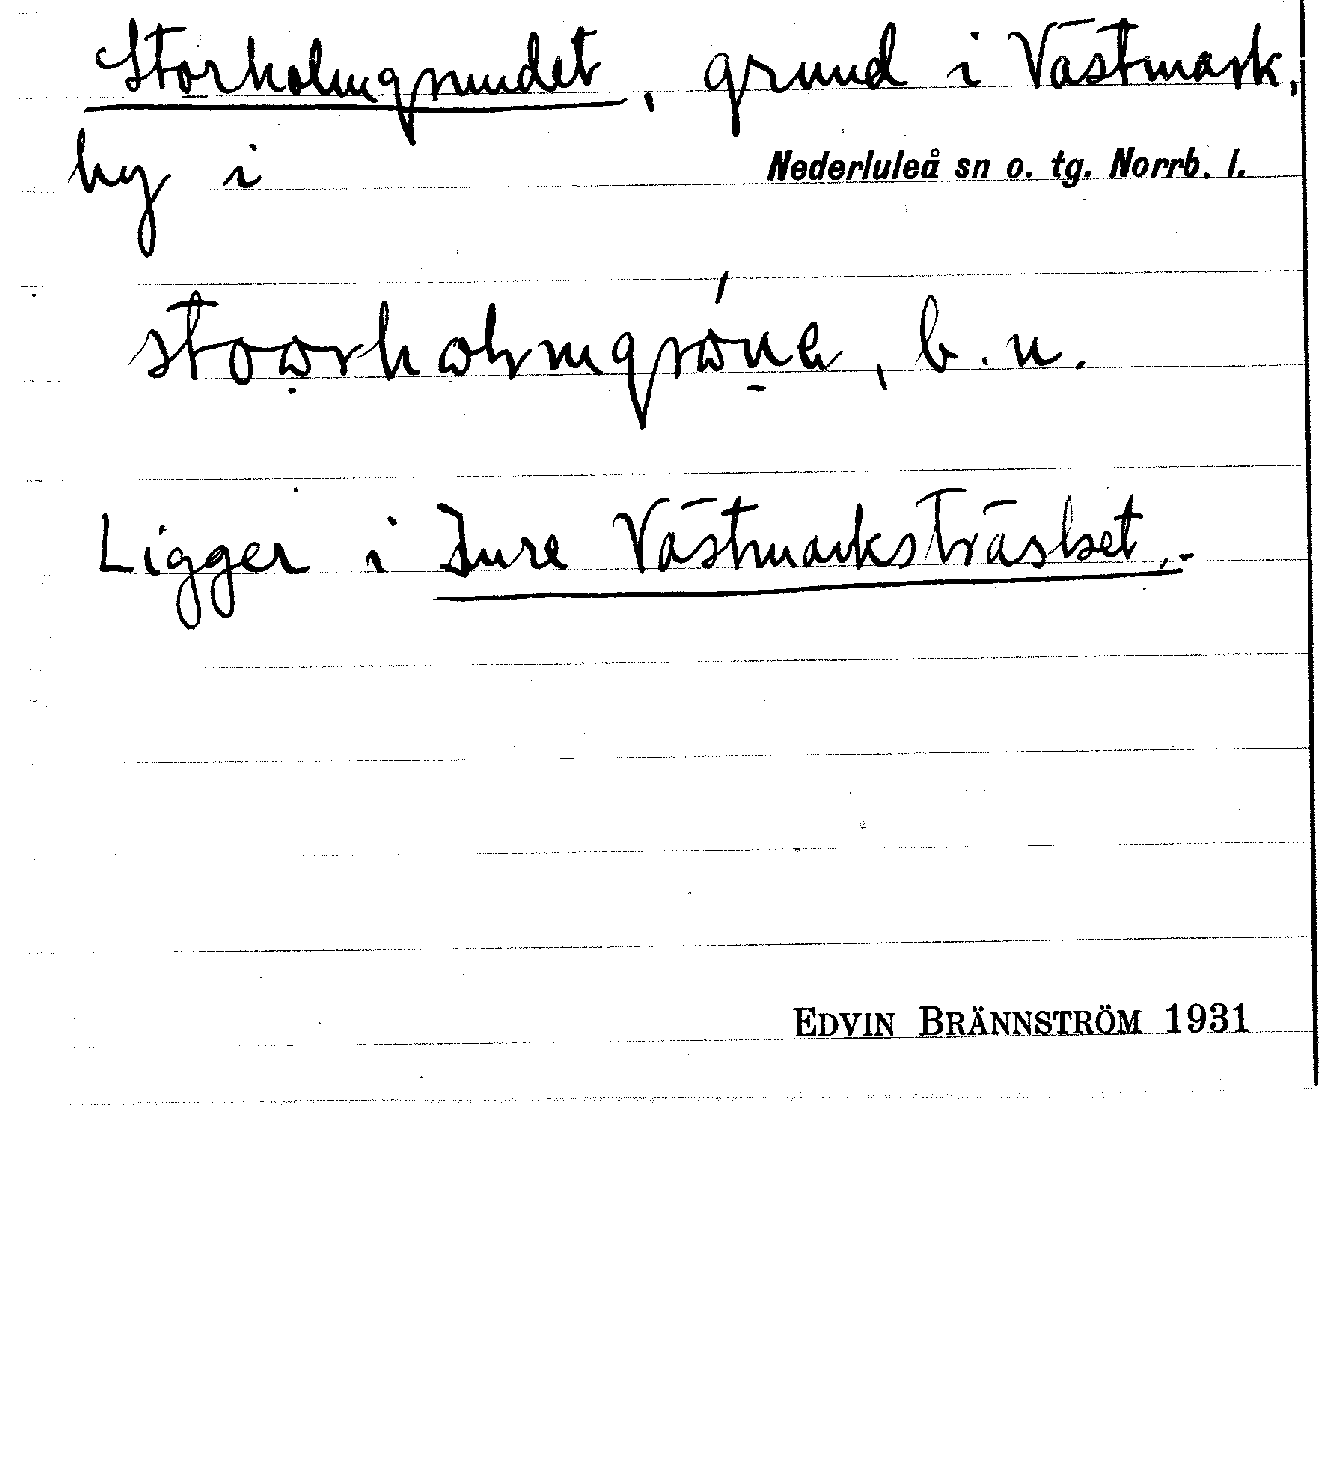 Storholmgrundet, grund i Västmark,
by i Nederluleå sn o. tg. Norrb. l.
b. n.
Ligger i Inre Västmarksträsket.-
EDVIN BRÄNNSTRÖM 1931